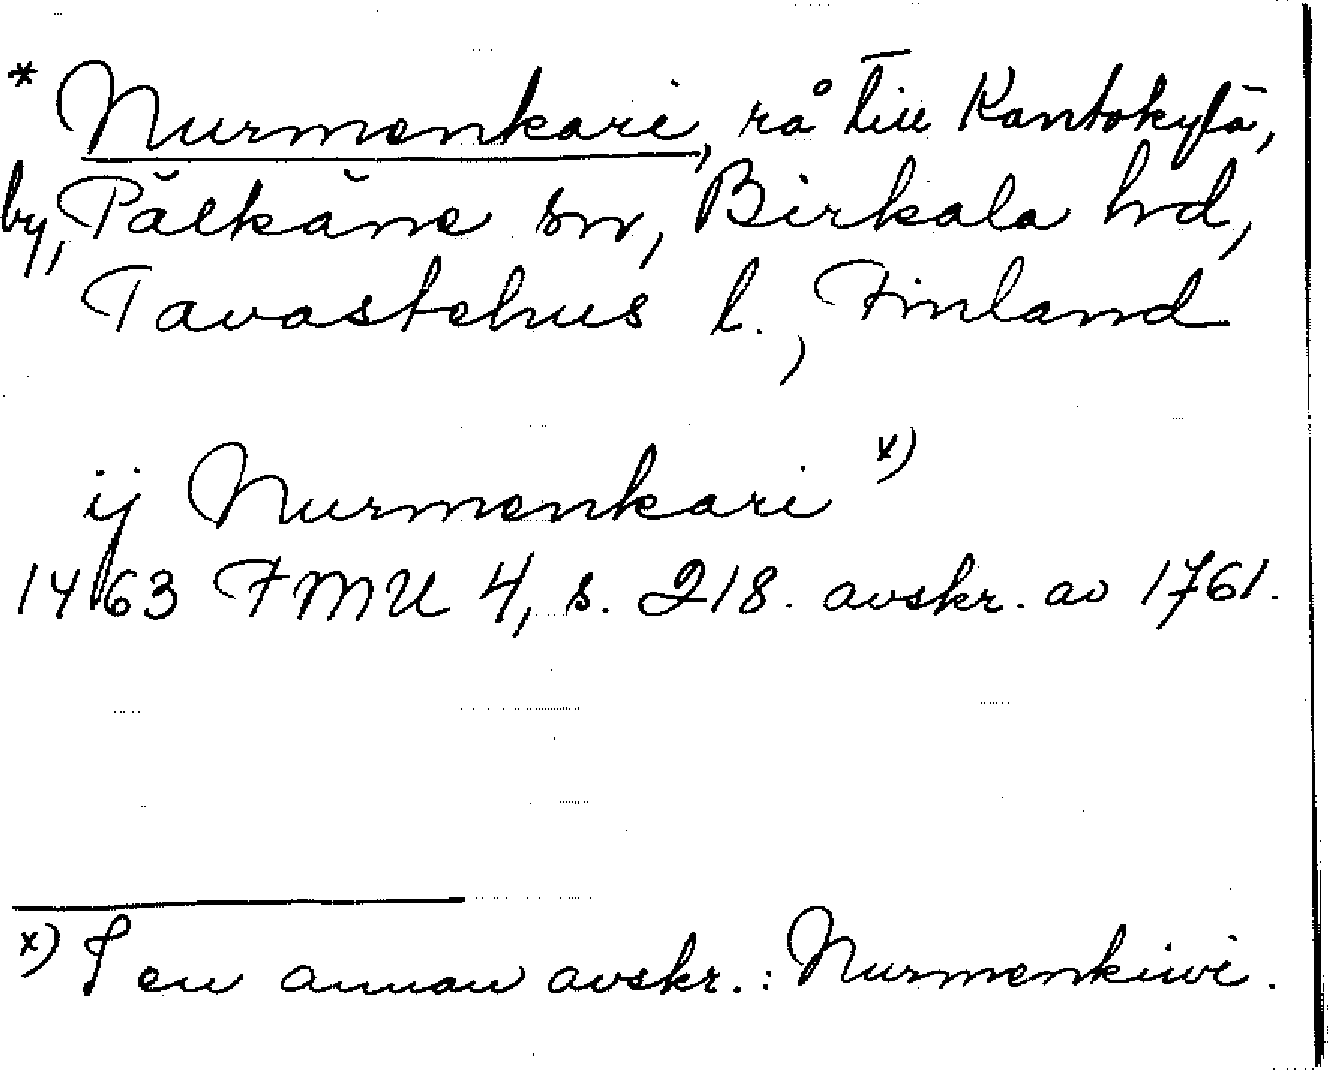 * Nurmenkari, rå till Kantokylä,
by, Pälkäne sn, Birkala hd,
Tavastehus l., Finland
ij Nurmenkari x)
1463 FMU 4, s. 218. avskr. av 1761.
x) I en annan avskr.: Nurmenkiwi.